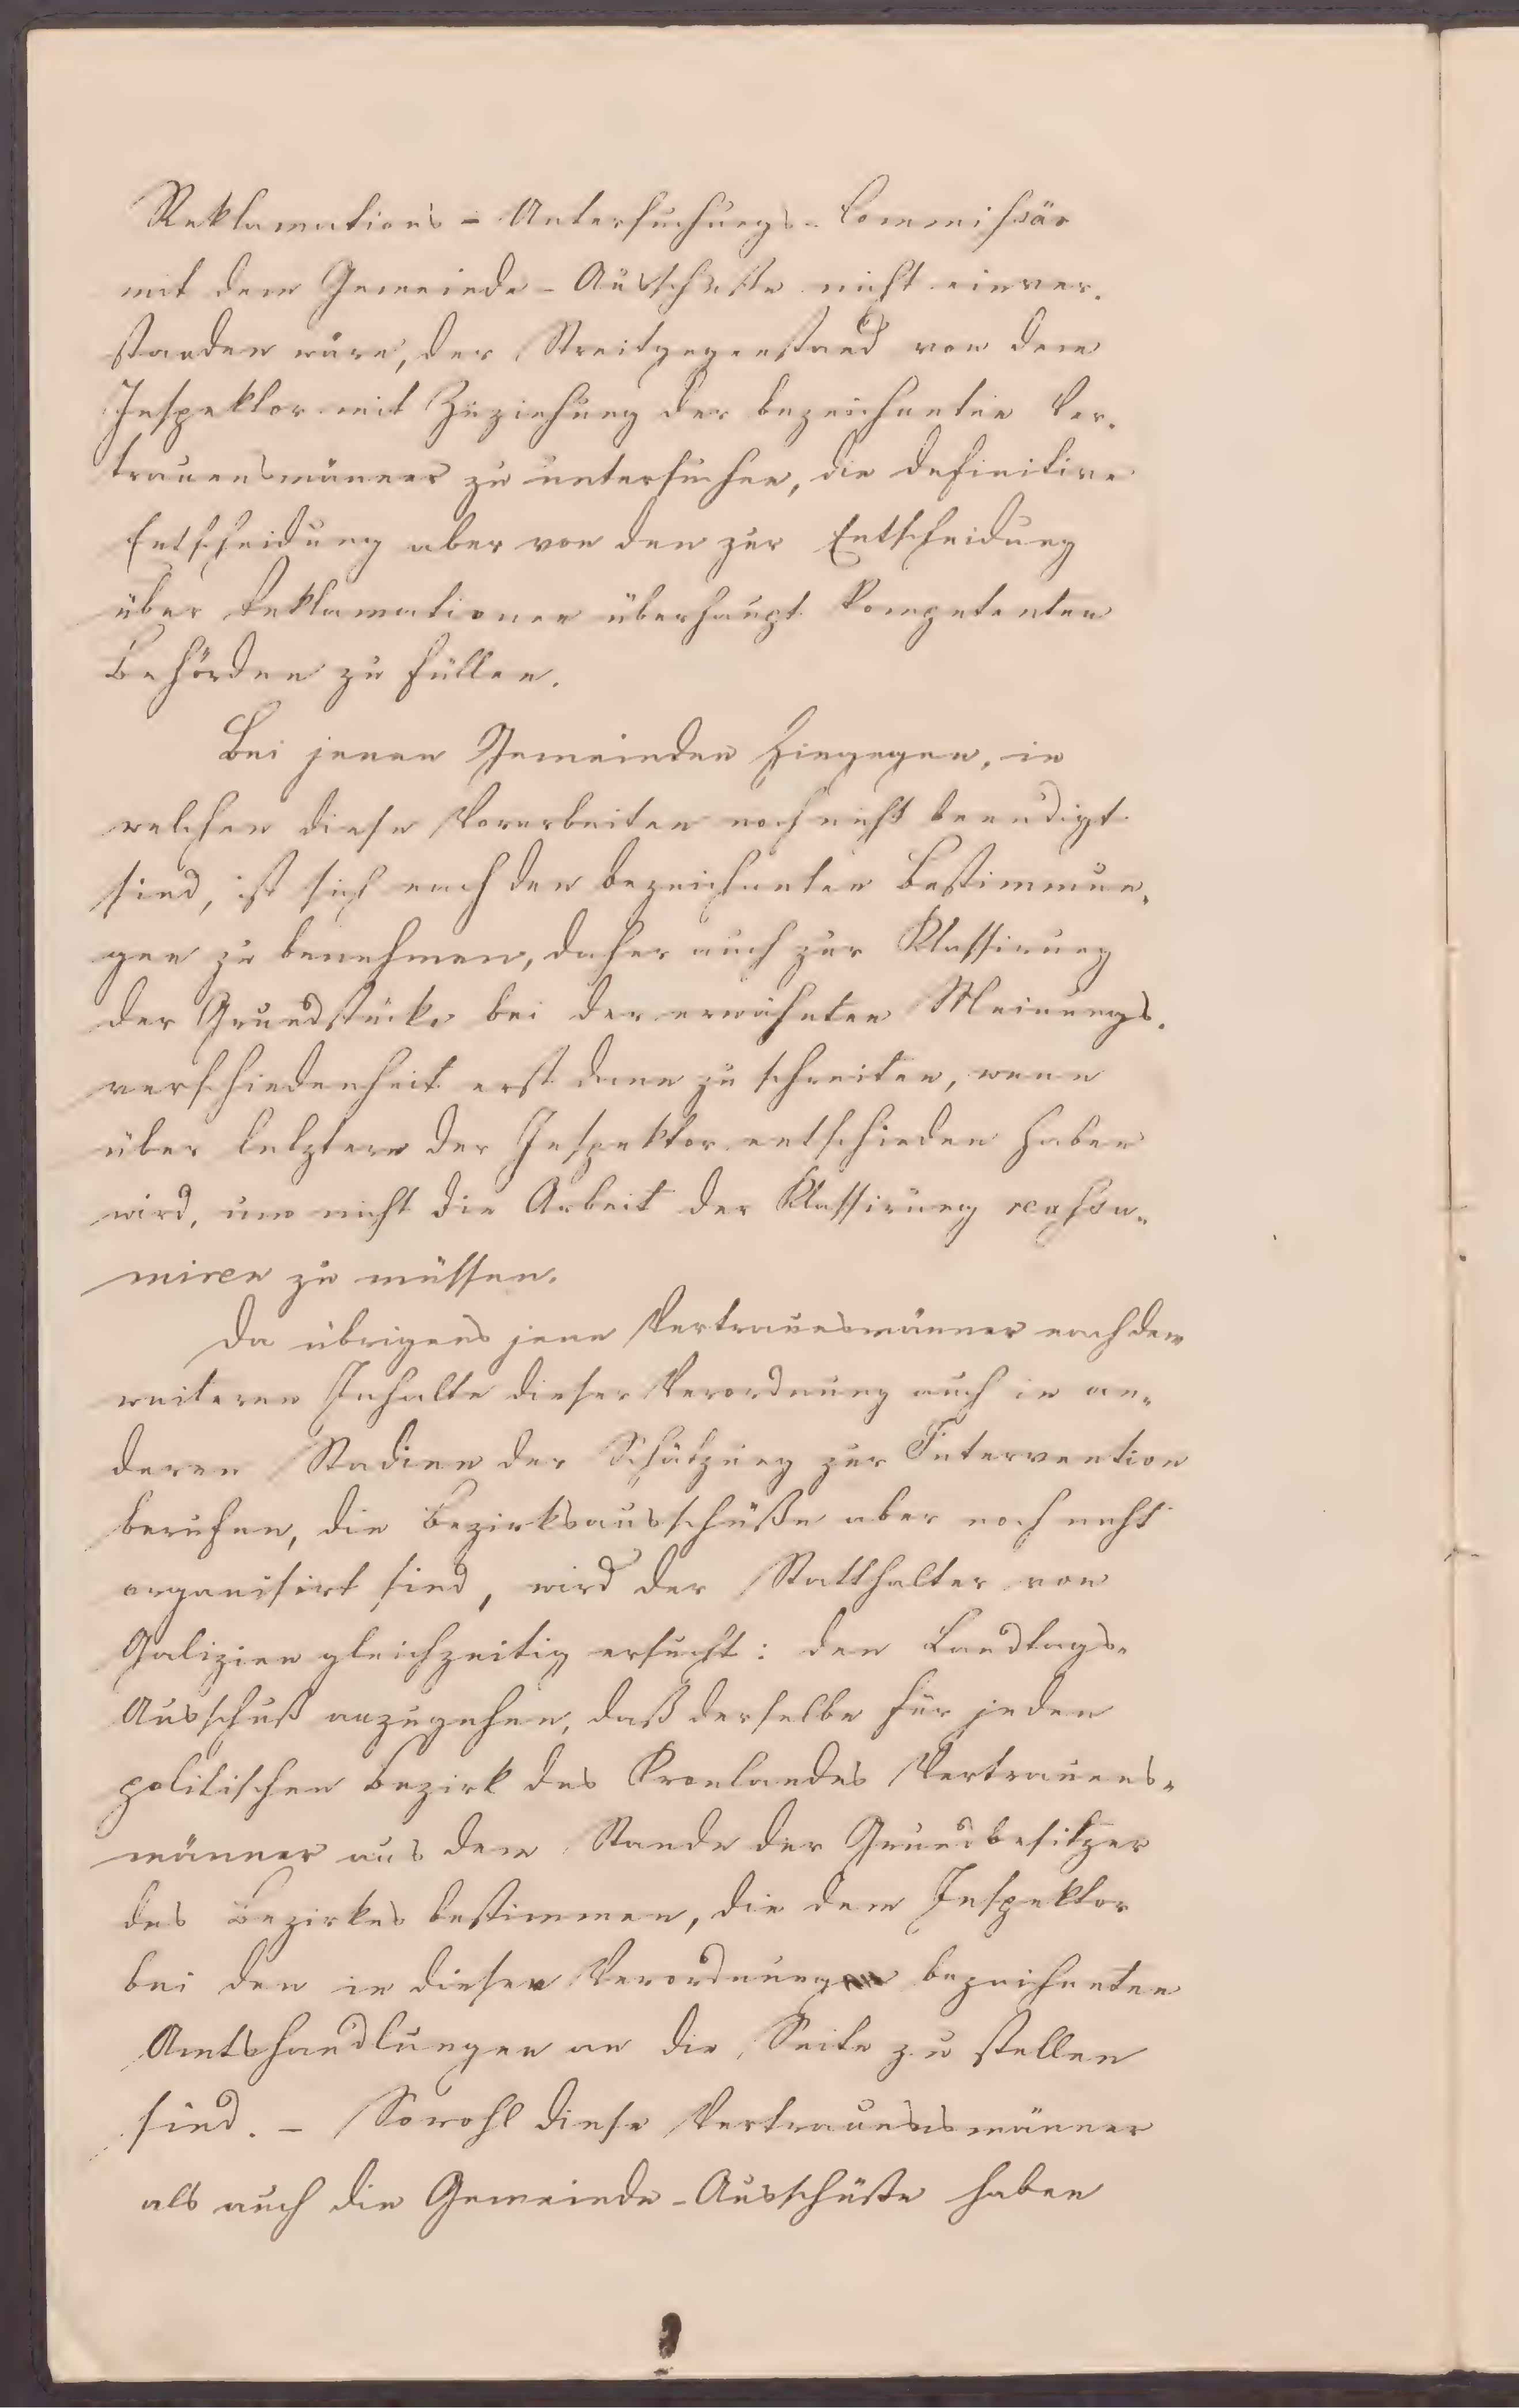 Reklamations-Untersuchungs-Commissär
mit dem Gemeinde-Ausschuße nicht einver-
standen wäre, der Streitgegenstand von dem
Inspektor mit Zuziehung der bezeichneten Ver-
trauensmänner zu untersuchen, die definitive
Entscheidung aber von den zur Entscheidung
über Reklamationen überhaupt kompetenten
Behörden zu fällen.
Bei jenen Gemeinden hingegen, in
welchen diese Vorarbeiten noch nicht beendigt
sind, ist sich nach den bezeichneten Bestimmun-
gen zu benehmen, daher auch zur Klassirung
der Grundstücke bei der erwähnten Meinungs-
verschiedenheit erst dann zu schreiten, wenn
über letztere der Inspektor entschieden haben
wird, um nicht die Arbeit der Klassirung reassu-
miren zu müssen.
Da übrigens jene Vertrauesmänner nach dem
weiteren Inhalte dieser Verordnung auch in an-
deren Stadien der Schätzung zur Intervention
berufen, die Bezirksausschüße aber noch nicht
organisirt sind, wird der Statthalter von
Galizien gleichzeitig ersucht: den Landtags-
Ausschuß anzugehen, daß derselbe für jeden
politischen Bezirk des Kronlandes Vertrauens-
männer aus dem Stande der Grundbesitzer
des Bezirkes bestimmen, die dem Inspektor
bei den in dieser Verordnung bezeichneten
Amtshandlungen an die Seite zu stellen
sind. - Sowohl diese Vertrauensmänner
als auch die Gemeinde-Ausschüße haben